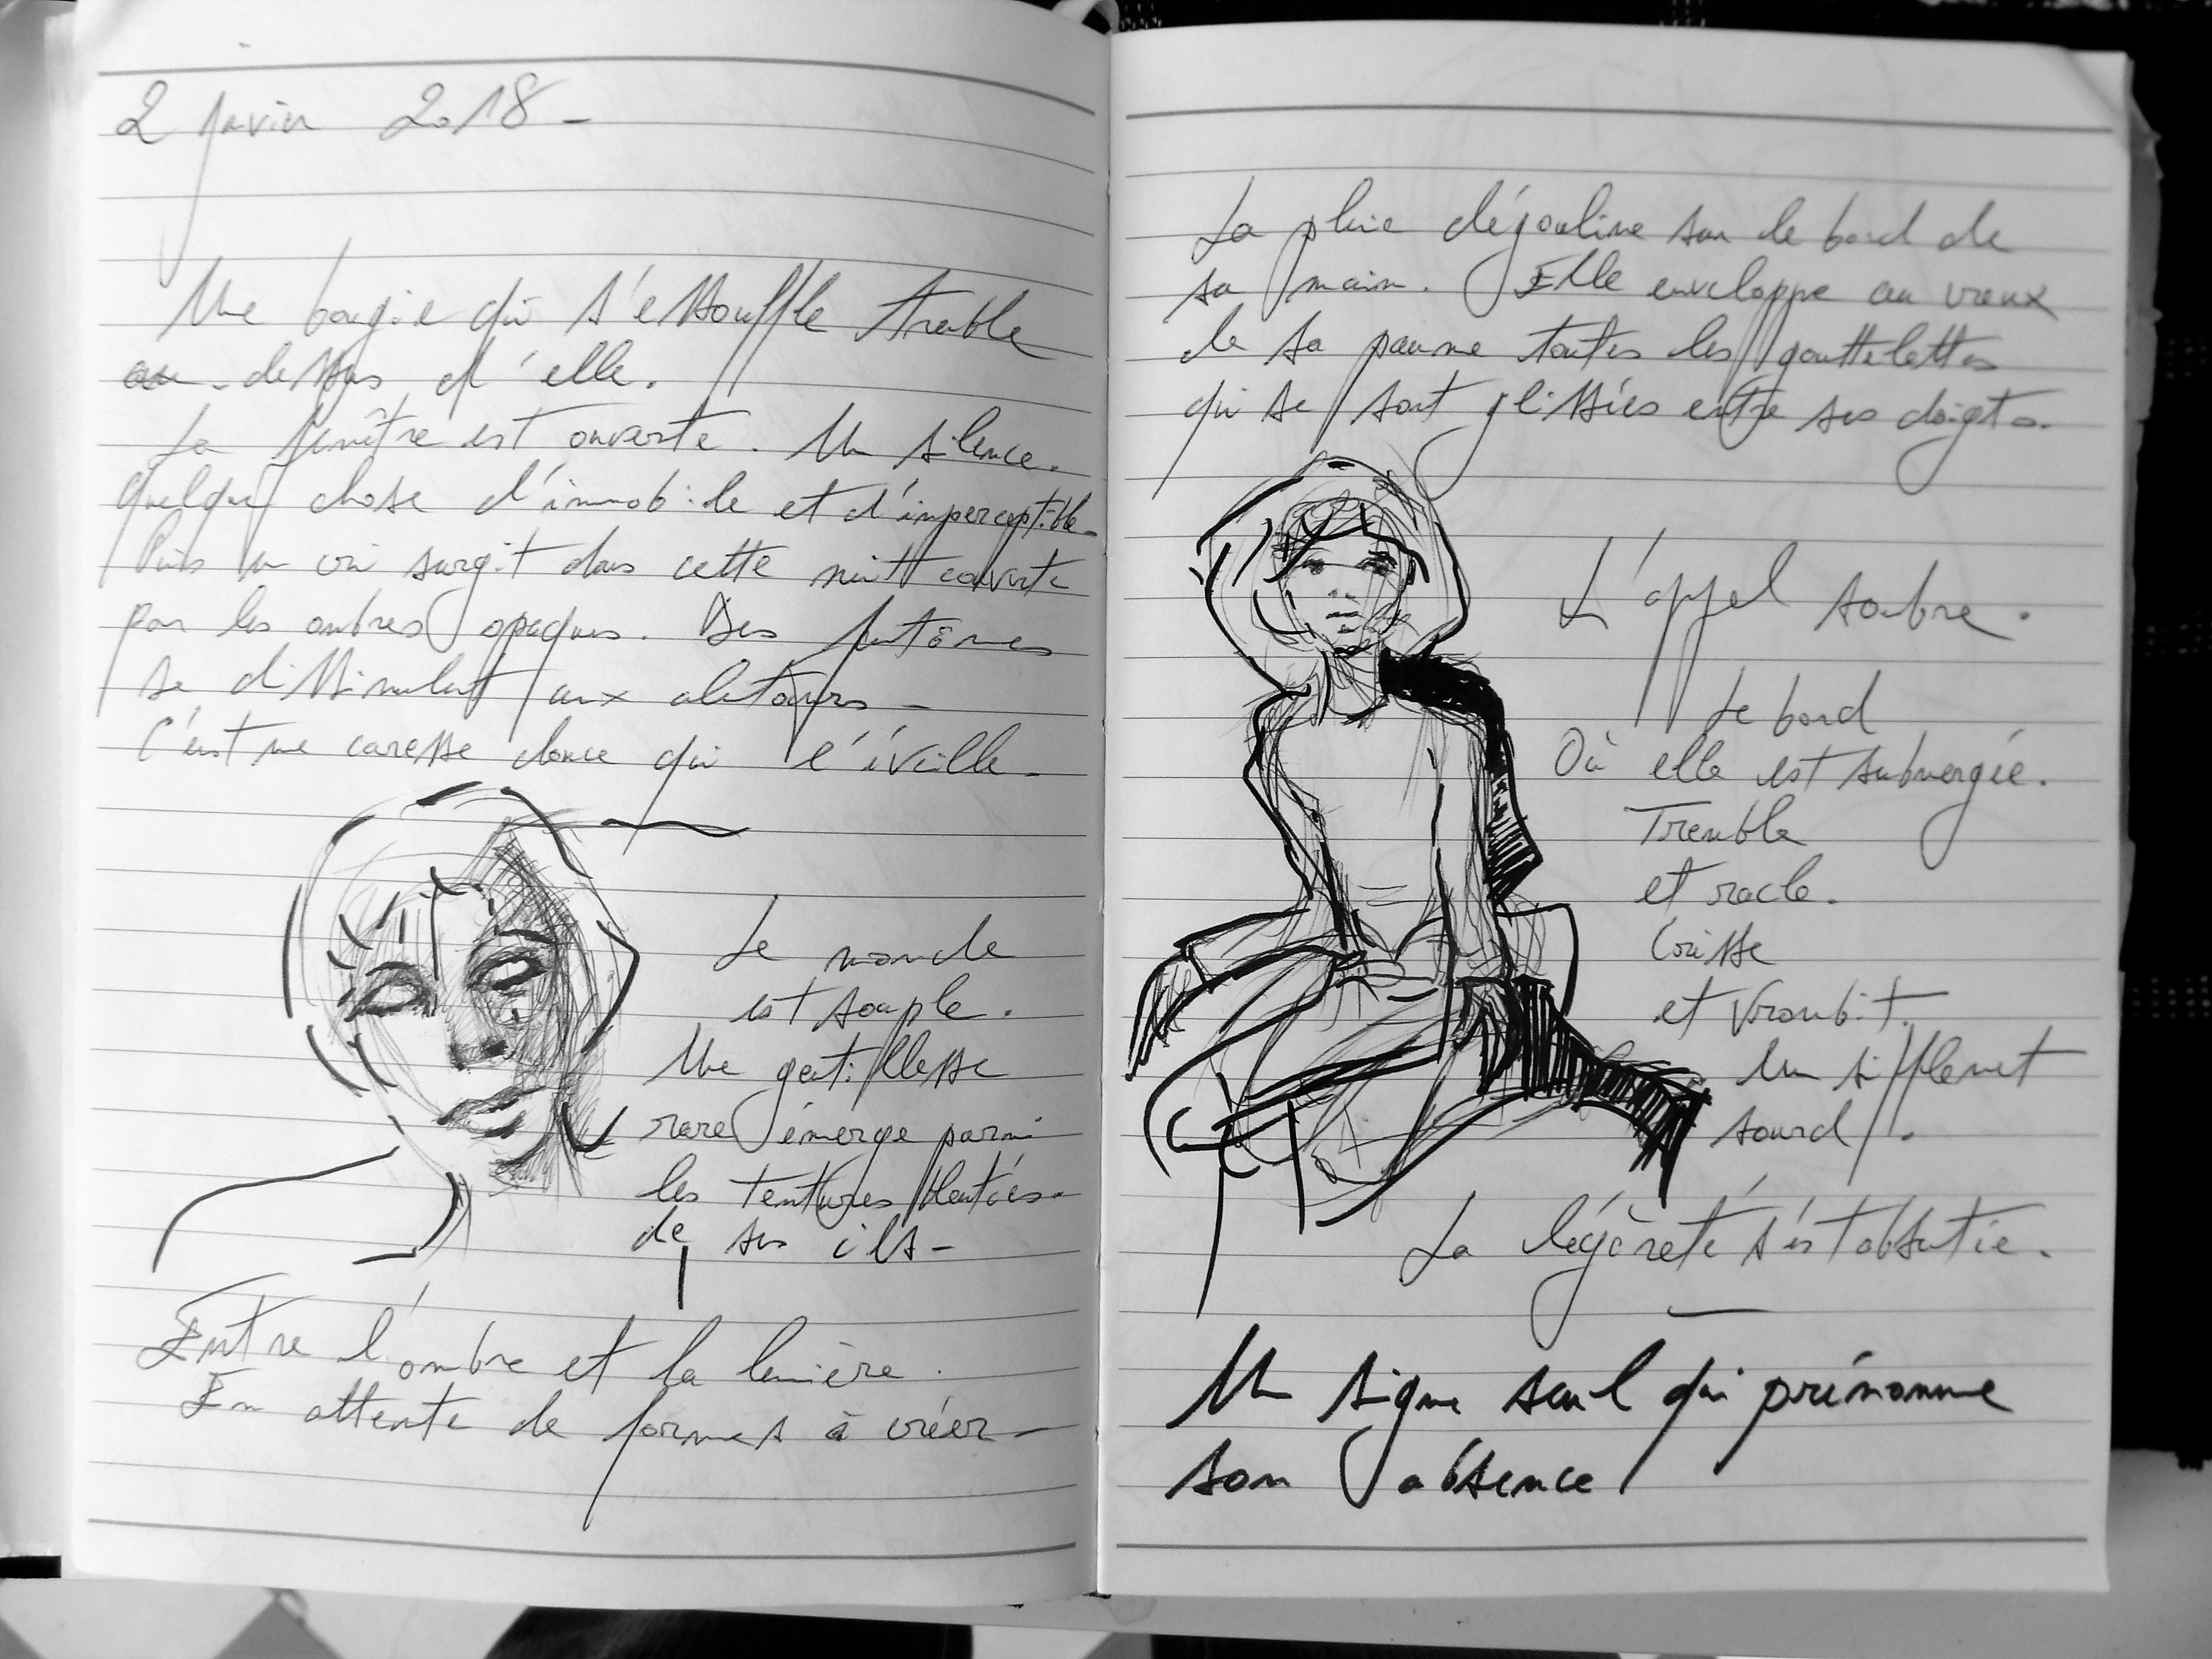 2 janvier 2018 -
Une bougie qui s'essouffle tremble
au-dessus d'elle.
La fenêtre est ouverte. Un silence.
Quelque chose d'immobile et d'imperceptible -
Puis un cri surgit dans cette nuit couverte
par les ombres opaques. Des fantômes
se dissimulent aux alentours -
C'est une caresse douce qui l'éveille -
Le monde
est souple.
Une gentillesse
rare émerge parmi
les tentures
de ses cils -
Entre l'ombre et la lumière.
En attente de formes à créer -
La pluie dégouline sur le bord de
sa main. Elle enveloppe au creux
de sa paume toutes les gouttelettes
qui se sont glissées entre ses doigts.
L'appel sombre.
Le bord
Où elle est submergée.
Tremble
et racle.
Crisse
et Vrombit.
Un sifflement
sourd.
La légèreté s'est absentée.
Un signe seul qui prénomme
son absence